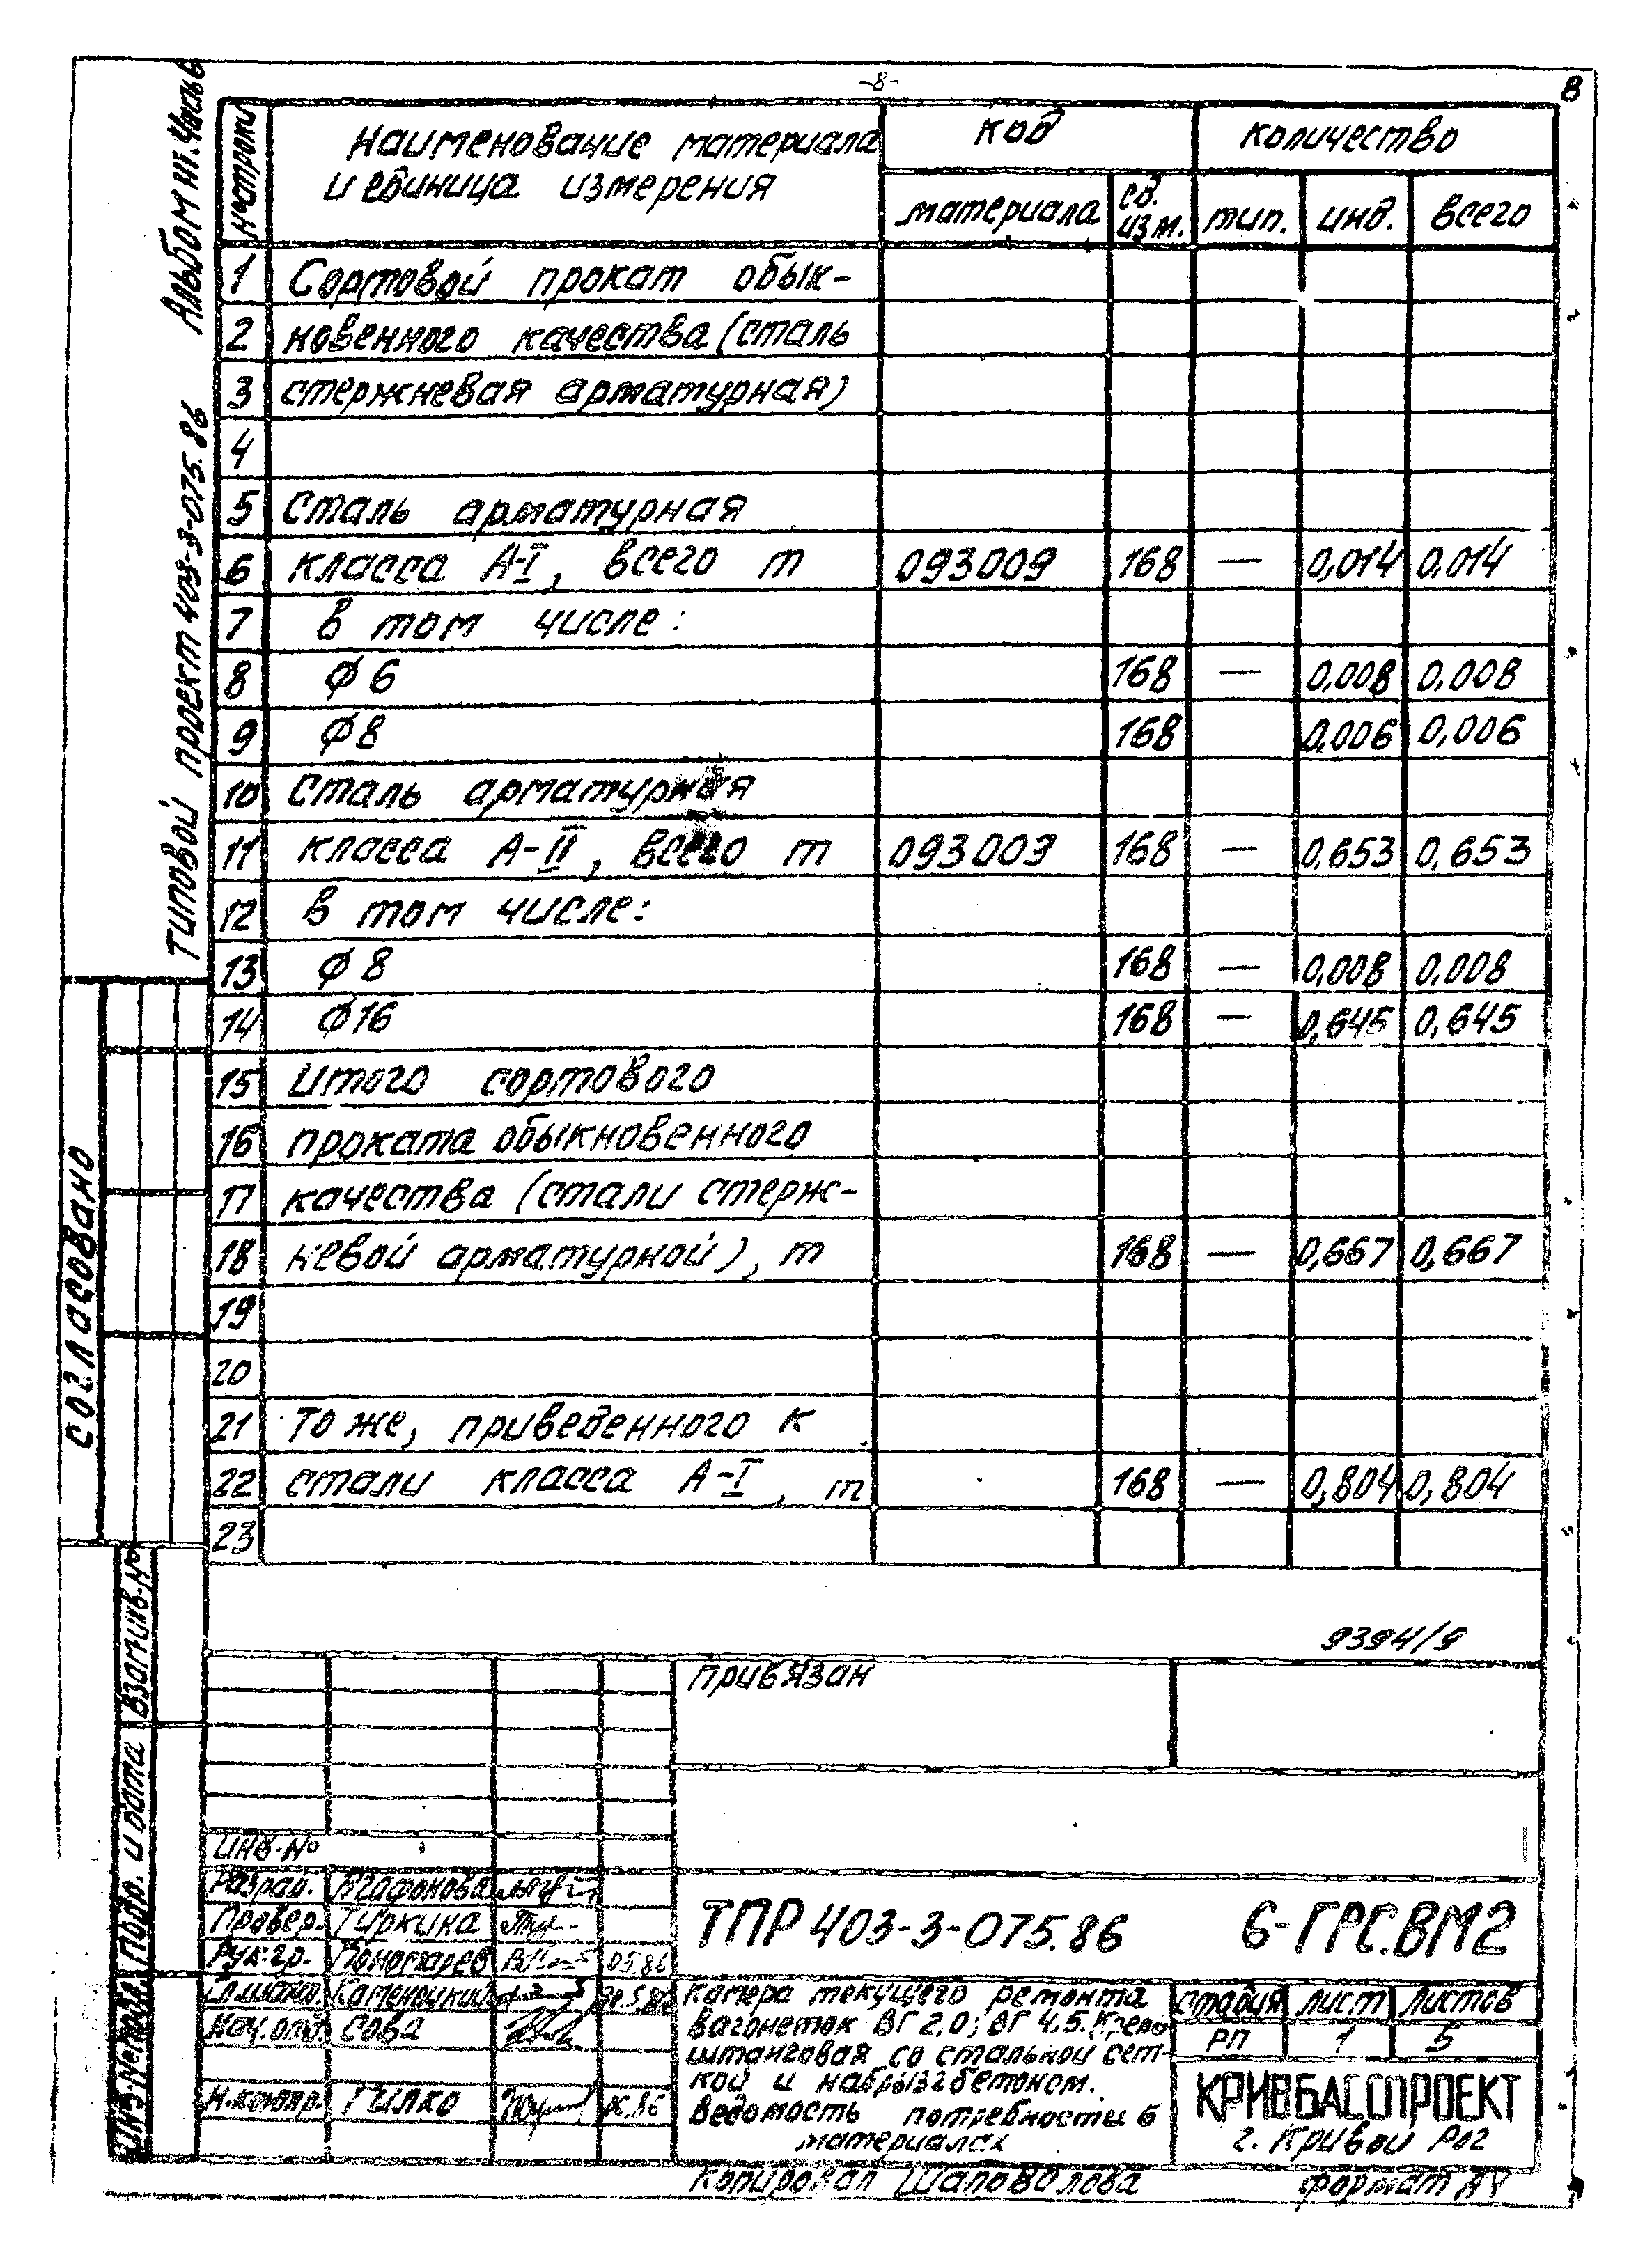 -8-
8
Альбом III. Часть 6
Типовой проект 403-3-075.86
№ строки
Наименование материала
и единица измерения
Код
Количество
материала
ед.
изм.
тип.
инд.
всего
1 Сортовой прокат обык-
2 новенного качества (сталь
3 стержневая арматурная)
4
5 Сталь арматурная
6 класса А-I, всего т 093009 168 — 0,014 0,014
7 в том числе:
8 ϕ 6 168 — 0,008 0,008
9 ϕ 8 168 0,006 0,006
10 Сталь арматурная
11 класса А-II, всего т 093009 168 — 0,653 0,653
12 в том числе:
13 ϕ 8 168 — 0,008 0,008
14 ϕ 16 168 — 0,645 0,645
15 Итого сортового
16 проката обыкновенного
17 качества (стали стерж-
18 невой арматурной), т 168 — 0,667 0,667
19
20
21 То же, приведенного к
22 стали класса А-I, т 168 — 0,804 0,804
23
Согласовано
Взам.инв.№
Подп. и дата
Инв.№ подл.
9394/9
Привязан
Инв.№
Разраб. Агафонова
Провер. Гуркина
Рук.гр. Пономарев 05.86
Каменецкий
Нач.отд. Сова
Н.контр. Гилко
ТПР 403-3-075.86 6-ГРС.ВМ2
Камера текущего ремонта
вагонеток ВГ 2,0; ВГ 4,5. Крепь
штанговая со стальной сет-
кой и набрызгбетоном.
Ведомость потребности в
материалах
Стадия Лист Листов
РП 1 5
КРИВБАССПРОЕКТ
г. Кривой Рог
Копировал Шаповалова
Формат А4